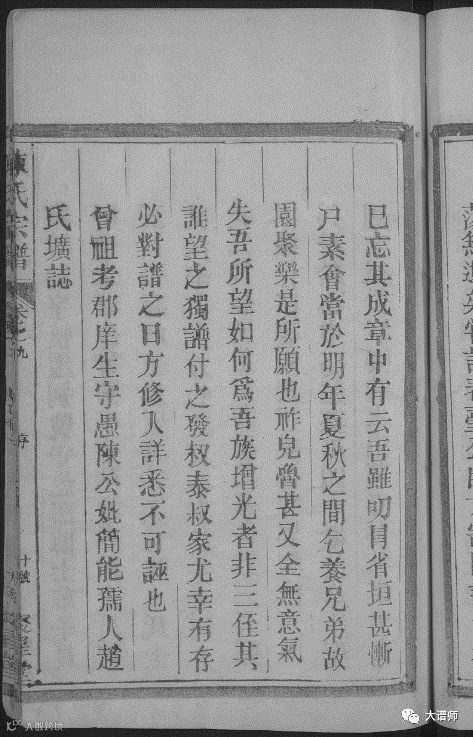 已忘其成章中有云吾雖叨冐省垣甚慚
尸素會當於明年夏秋之間乞養兄弟故
園聚樂是所願也祚兒魯甚又全無意氣
失吾所望如何爲吾族增光者非三侄其
誰望之獨譜付之發叔泰叔家尤幸有存
必對譜之日方修人詳悉不可誣也
曾祖考郡庠生守愚陳公妣簡能孺人趙
氏壙誌
陳氏宗譜
卷之九
序
大谱师